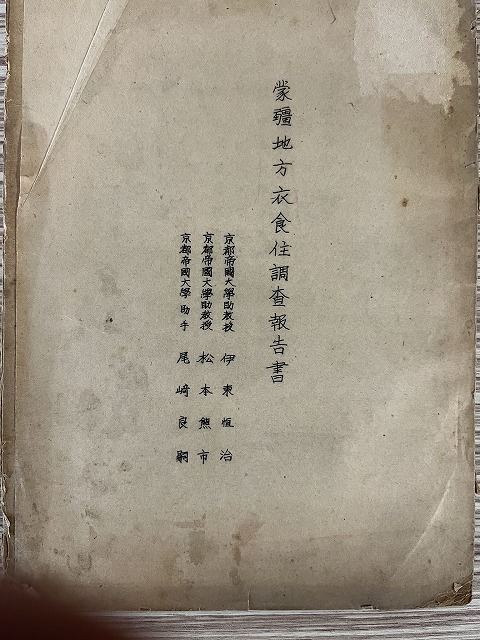 蒙疆地方衣食住調査報告書
京都帝國大學助教授 伊東恒治
京都帝國大學助教授 松本熊市
京都帝國大學助手 尾﨑良嗣